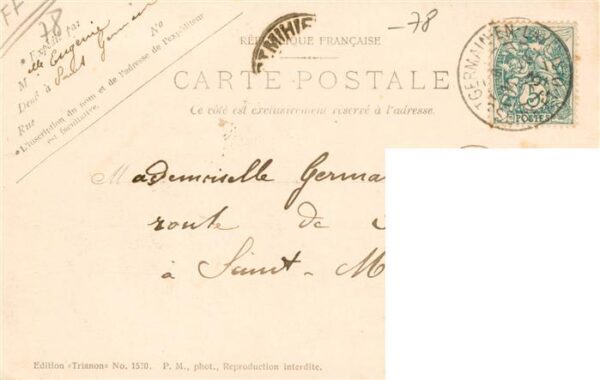 FF
78
-78
* Expédié par
Mlle Eugénie
Demt à Saint Germain
Rue No
*L'inscription du nom et de l'adresse de l'expéditeur
est facultative.
ST MIHIEL
RÉPUBLIQUE FRANÇAISE
CARTE POSTALE
Ce côté est exclusivement réservé à l'adresse.
ST GERMAIN-EN-LAYE
5c
POSTES
Mademoiselle Germa
route de
à Saint-M
Edition «Trianon» No. 1520. P. M., phot., Reproduction interdite.